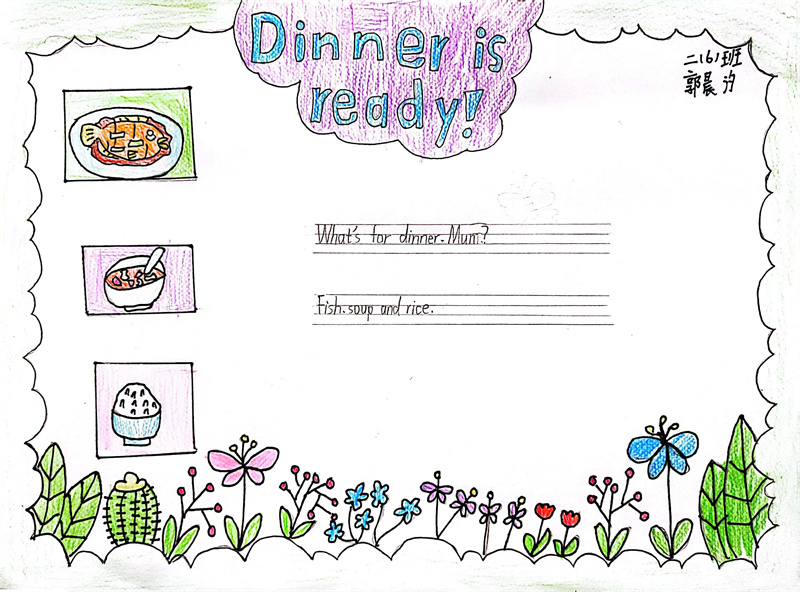 Dinner is
ready!
二161班
郭晨汐
What's for dinner. Mum?
Fish. soup and rice.